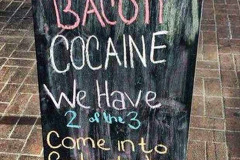 BACON
COCAINE
We Have
2 of the 3
Come into